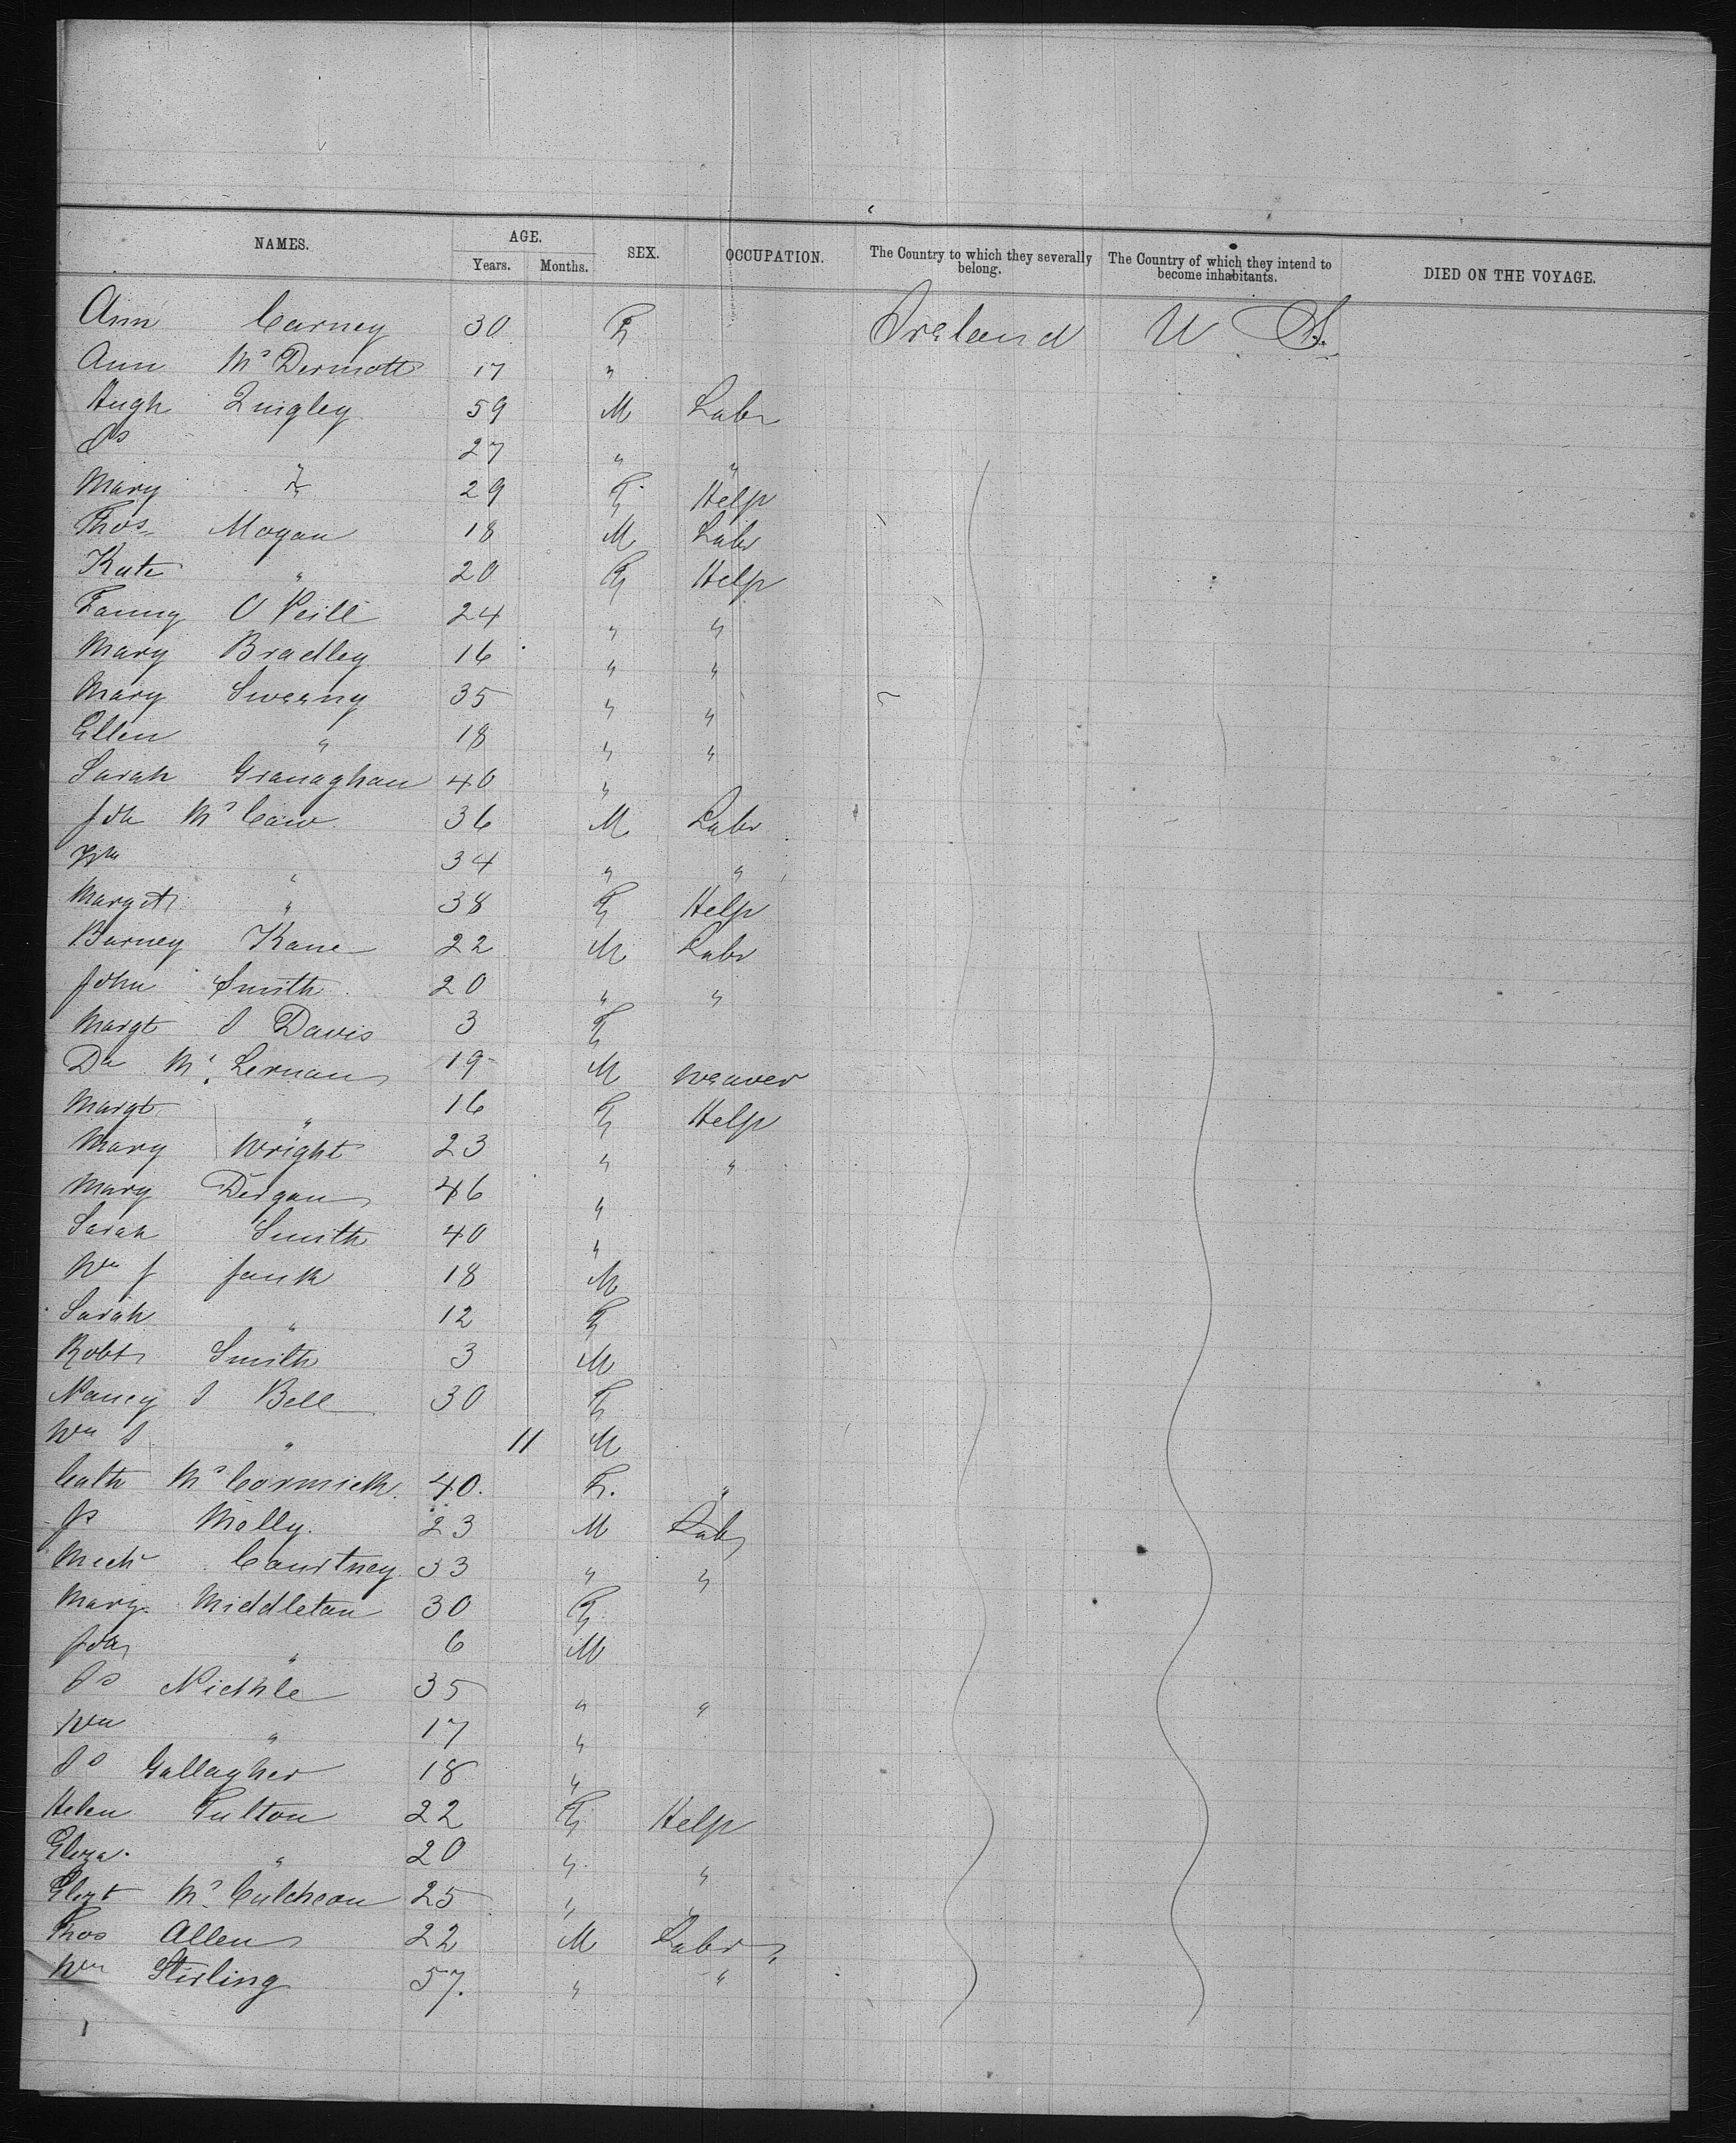 NAMES. AGE. SEX. OCCUPATION. The Country to which they severally belong. The Country of which they intend to become inhabitants. DIED ON THE VOYAGE.
Years. Months.
Ann Carney 30 F Ireland U S.
Ann McDermott 17 "
Hugh Quigley 59 M Labr
Js 27 " "
Mary " 29 F Help
Thos Mogan 18 M Labr
Kate " 20 F Help
Fanny O Neill 24 " "
Mary Bradley 16 " "
Mary Sweeny 35 " "
Ellen " 18 " "
Sarah Granaghan 40 "
Joh McCaw 36 M Labr
" 34 " "
Margt " 38 F Help
Barney Kane 22 M Labr
John Smith 20 " "
Margt J Davis 3 F
Da Mc Lernan 19 M Weaver
Margt " 16 F Help
Mary Wright 23 " "
Mary Degan 46 "
Sarah Smith 40 "
Wm J Junk 18 M
Sarah " 12 F
Robt Smith 3 M
Nancy J Bell 30 F
Wm J " 11 M
Cath McCormick 40. F. "
Js Molly. 23 M Labr
Mich Courtney 33 " "
Mary Middleton 30 F
Joh " 6 M
Js Nickle 35 " "
Wm " 17 "
Js Gallagher 18 "
Helen Fulton 22 F Help
Eliza " 20 " "
Elizt McCutcheon 25 " "
Thos Allen 22 M Labr
Wm Stirling 57. " "